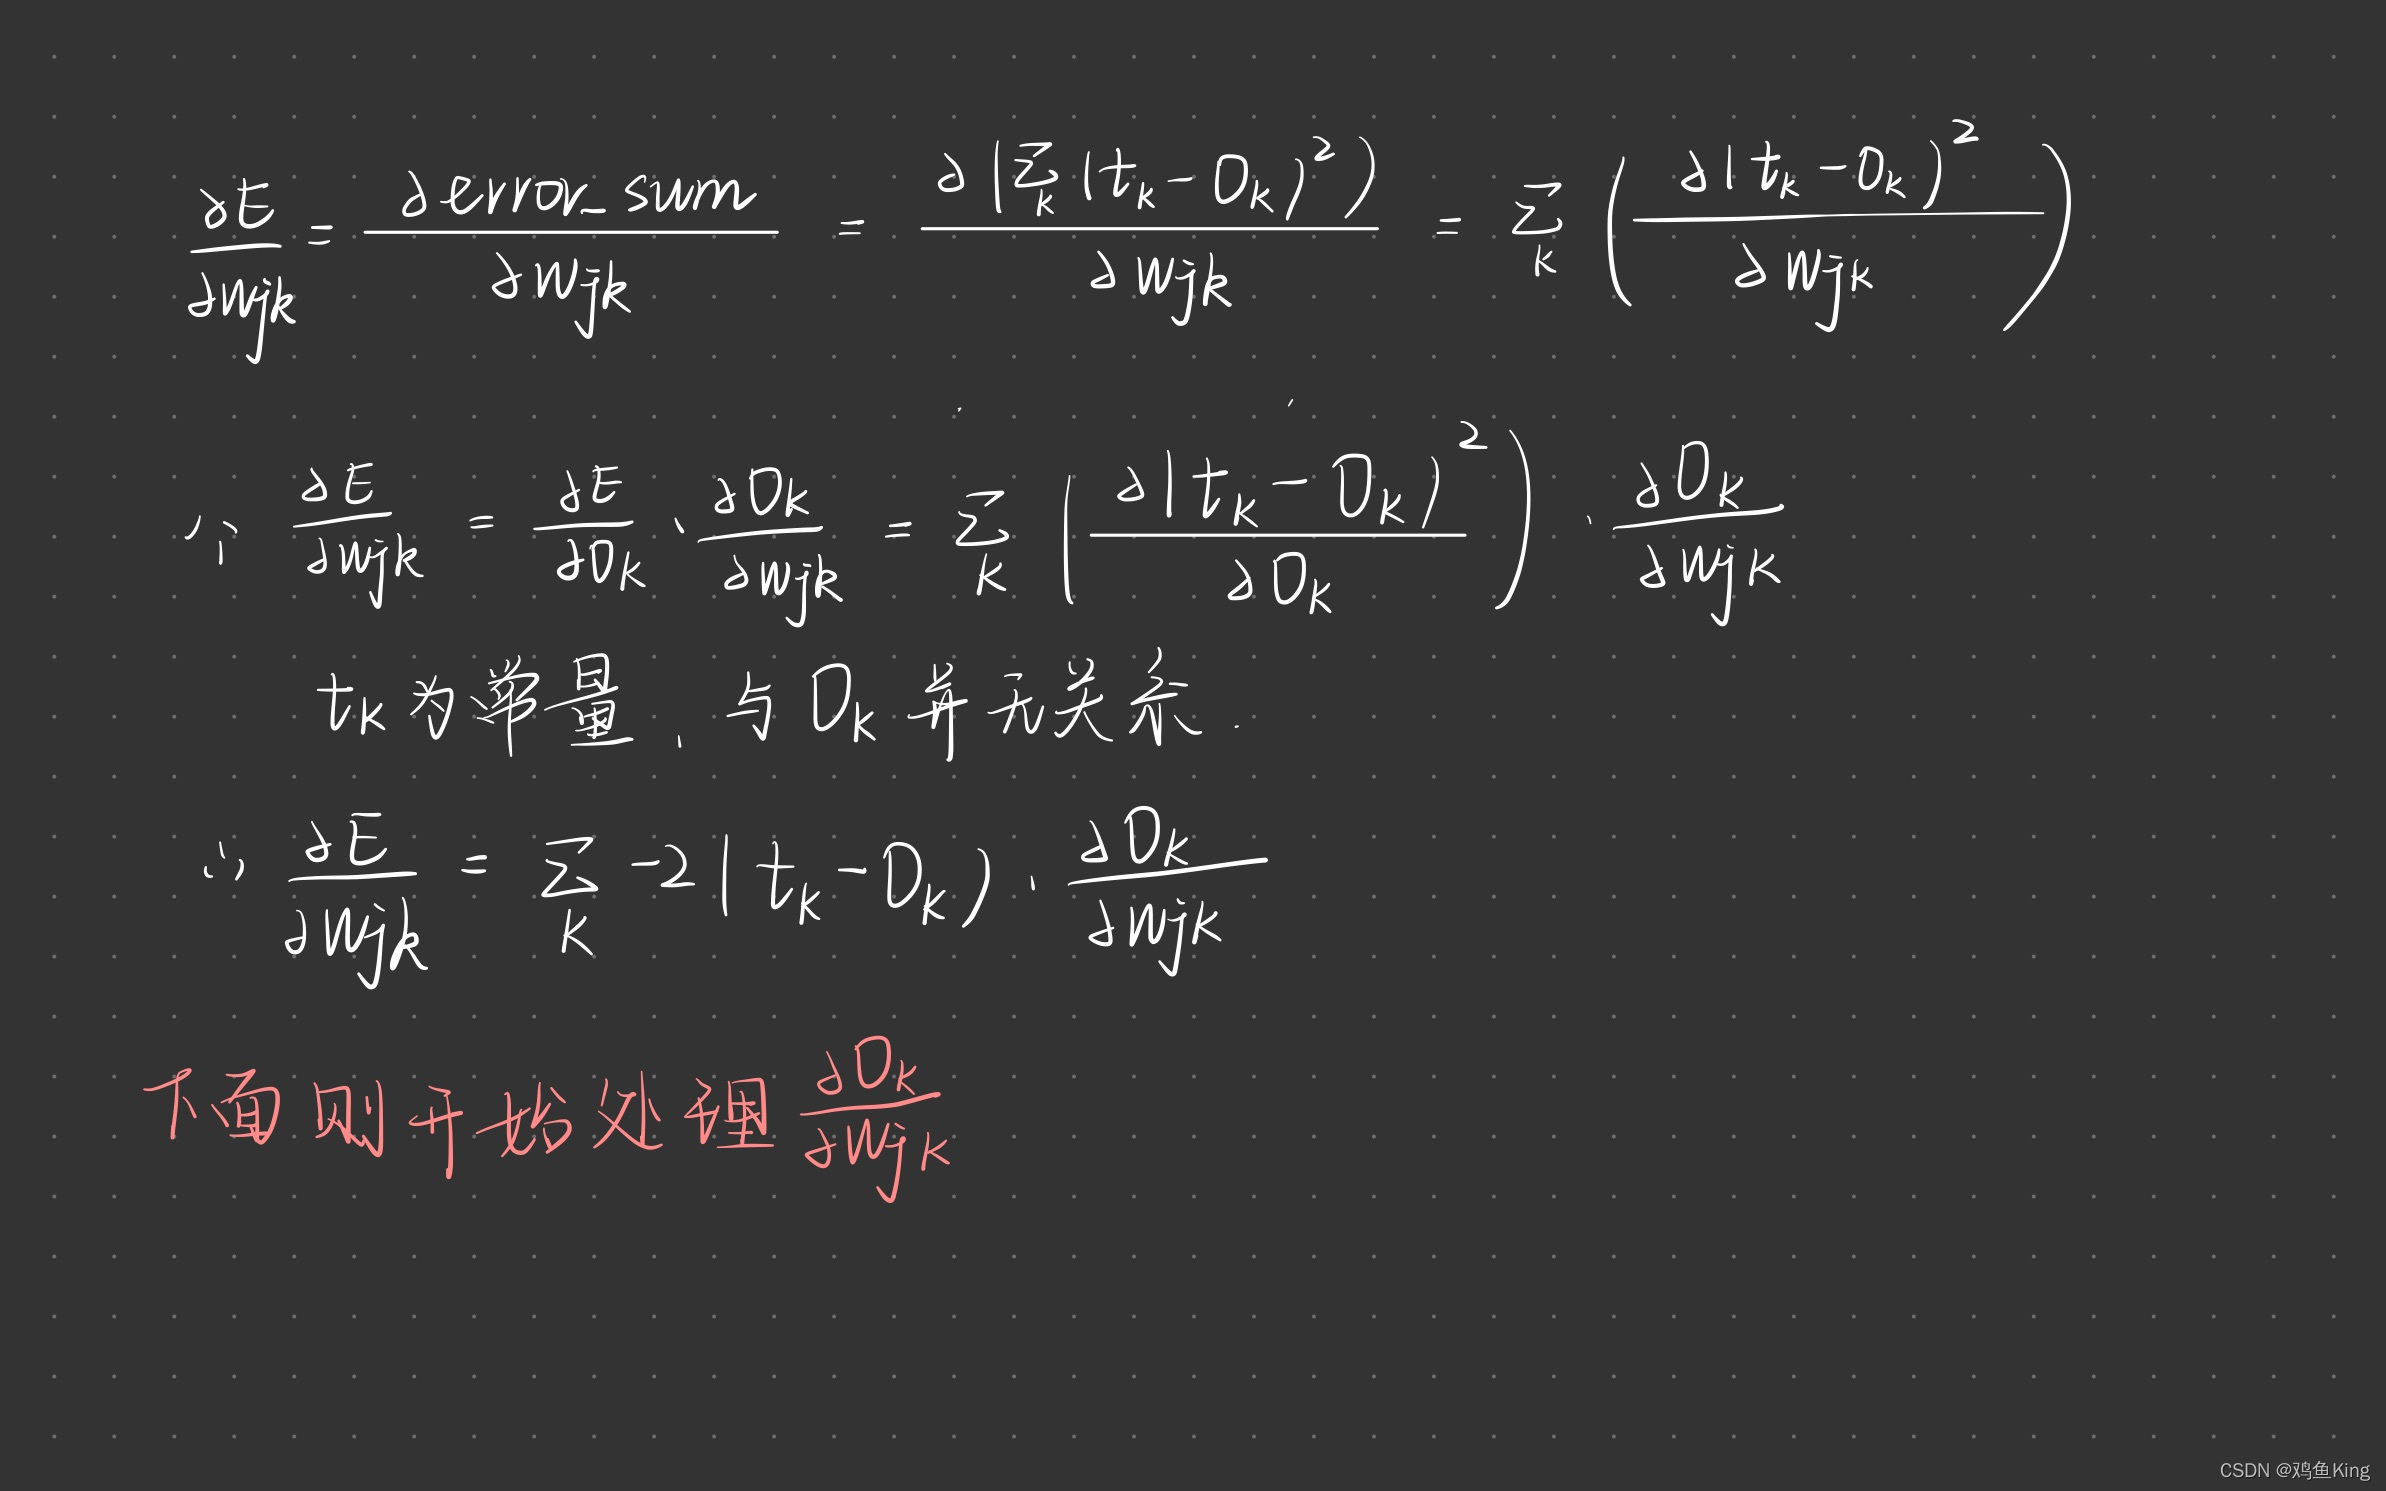 ∂E/∂Wjk = ∂error sum/∂Wjk = ∂(∑k(tk-Ok)²)/∂Wjk = ∑k(∂(tk-Ok)²/∂Wjk)
∵ ∂E/∂Wjk = ∂E/∂Ok · ∂Ok/∂Wjk = ∑k(∂(tk-Ok)²/∂Ok) · ∂Ok/∂Wjk
tk为常量, 与Ok并无关系.
∴ ∂E/∂Wjk = ∑k -2(tk-Ok) · ∂Ok/∂Wjk
下面则开始处理 ∂Ok/∂Wjk
CSDN @鸡鱼King